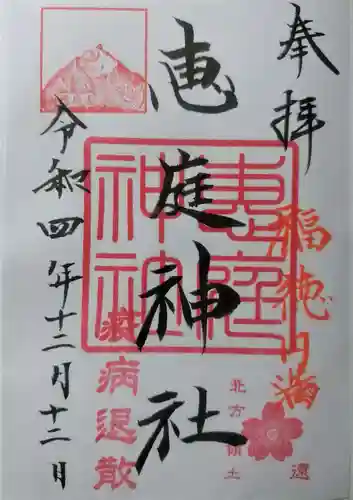 奉拝
福徳円満
恵庭神社
恵庭
神社
北方領土
還
疫病退散
令和四年十二月十二日